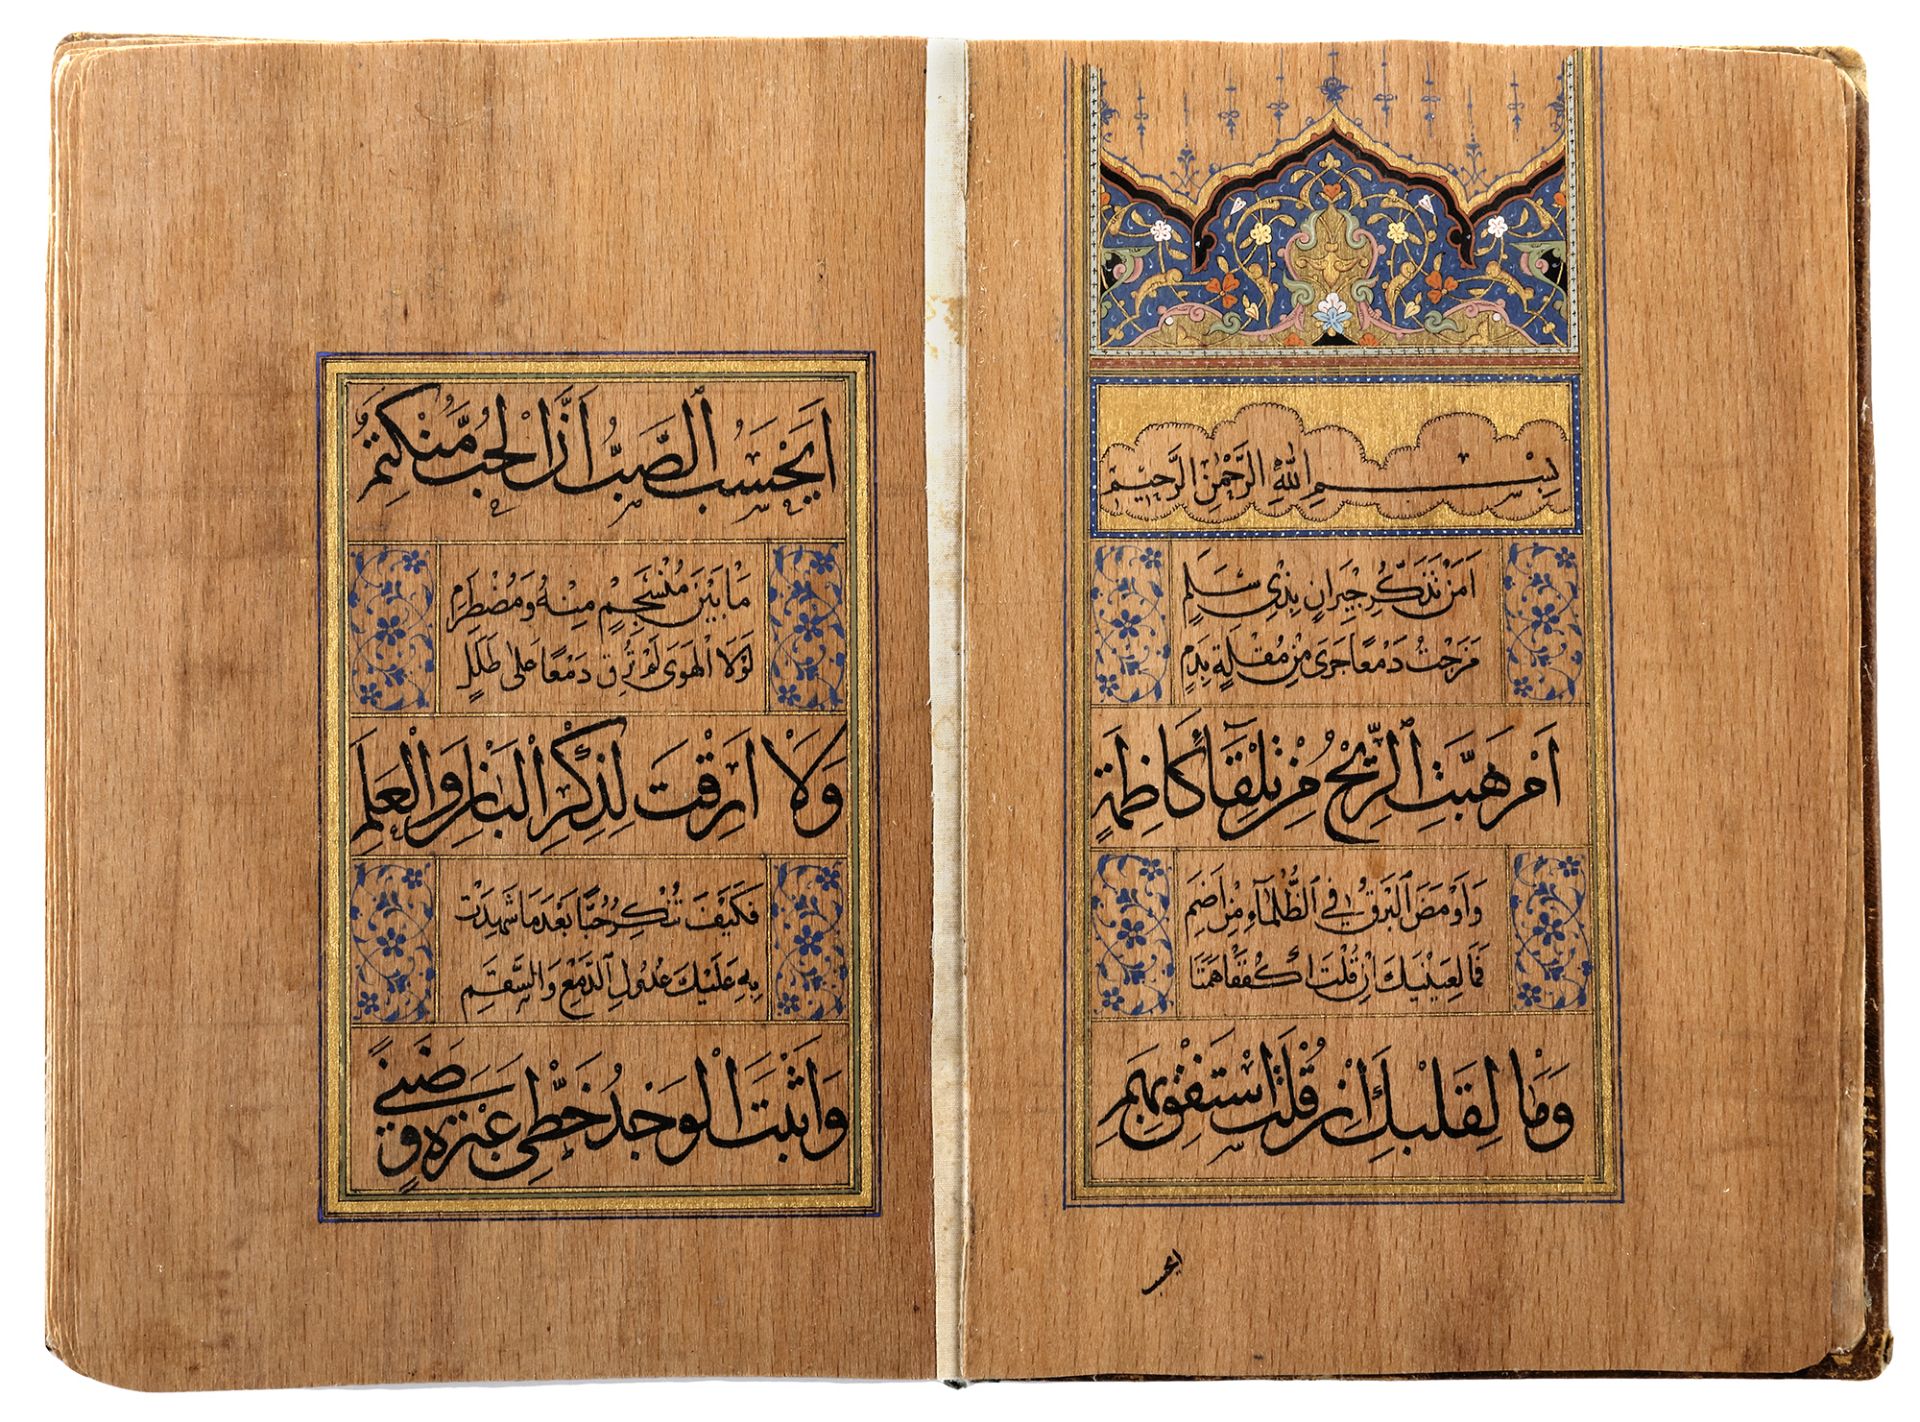 بِسْمِ اللّٰهِ الرَّحْمٰنِ الرَّحِيْمِ
اَمِنْ تَذَكُّرِ جِيْرَانٍ بِذِيْ سَلَمٍ
مَزَجْتَ دَمْعًا جَرَى مِنْ مُقْلَةٍ بِدَمٍ
اَمْ هَبَّتِ الرِّيْحُ مِنْ تِلْقَآ كَاظِمَةٍ
وَاَوْمَضَ الْبَرْقُ فِي الظَّلْمَآءِ مِنْ اِضَمِ
فَمَا لِعَيْنَيْكَ اِنْ قُلْتَ اكْفُفَا هَمَتَا
وَمَا لِقَلْبِكَ اِنْ قُلْتَ اسْتَفِقْ يَهِمِ
ايحسب
اَيَحْسَبُ الصَّبُّ اَنَّ الْحُبَّ مُنْكَتِمٌ
مَا بَيْنَ مُنْسَجِمٍ مِنْهُ وَمُضْطَرِمِ
لَوْلَا الْهَوَى لَمْ تُرِقْ دَمْعًا عَلٰى طَلَلٍ
وَلَا اَرِقْتَ لِذِكْرِ الْبَانِ وَالْعَلَمِ
فَكَيْفَ تُنْكِرُ حُبًّا بَعْدَ مَا شَهِدَتْ
بِهِ عَلَيْكَ عُدُولُ الدَّمْعِ وَالسَّقَمِ
وَاَثْبَتَ الْوَجْدُ خَطَّيْ عَبْرَةٍ وَضَنًى